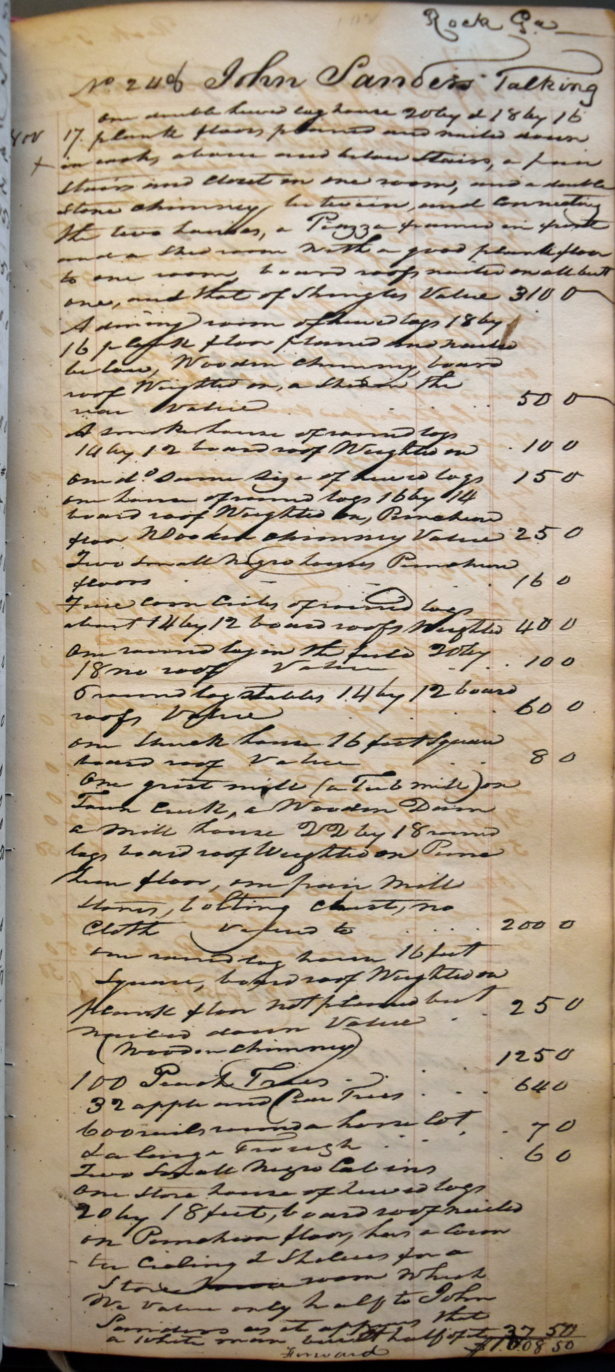 Rock Ga
No 248 John Sanders Talking
one double hewed log house 20 by & 18 by 16
17. plank floors planed and nailed down
in both above and below stairs, a pair
stairs and closet in one room, and a double
stone chimney between, and connecting
the two houses, a Piazza framed in front
and a shed room with a good plank floor
to one room, board roofs nailed on all but
one, and that of Shingles Value 310 0
A dining room of hewed logs 18 by
16 plank floor planed and nailed
below, Wooden chimney, board
roof Weighted on, a shed on the
rear Value 50 0
A smoke house of round logs
14 by 12 board roof Weighted on 10 0
one do. Same size of hewed logs 15 0
one house of round logs 16 by 14
board roof Weighted on, Puncheon
floor Wooden chimney Value 25 0
Two Small Negro houses Puncheon
floors 16 0
Four Corn Cribs of round logs
about 14 by 12 board roofs Weighted 40 0
One round log in the field 20 by
18 no roof Value 10 0
5 round log stables 14 by 12 board
roofs Value 60 0
one house 16 feet Square
board roof Value 8 0
One grist mill (a Tub mill) on
Town Creek, a Wooden Dam
a mill house 22 by 18 round
logs board roof Weighted on Punc
heon floor, one pair Mill
stones, bolting chest, no
Cloth Valued to 200 0
one round log house 16 feet
Square, board roof Weighted on
plank floor not planed but
nailed down Value 25 0
(Wooden chimney)
100 Peach Trees 125 0
32 apple and Pear Trees 64 0
600 rails round a horse lot 7 0
& a large Trough 6 0
Two Small Negro Cabins
One Store house of hewed logs
20 by 18 feet, board roof nailed
on Puncheon floor, has a Coun
ter Ceiling & Shelves for a
Store room Which
We Value only half to John
Sanders as it appears that
a White man built half of it 37 50
Forward $1008 50